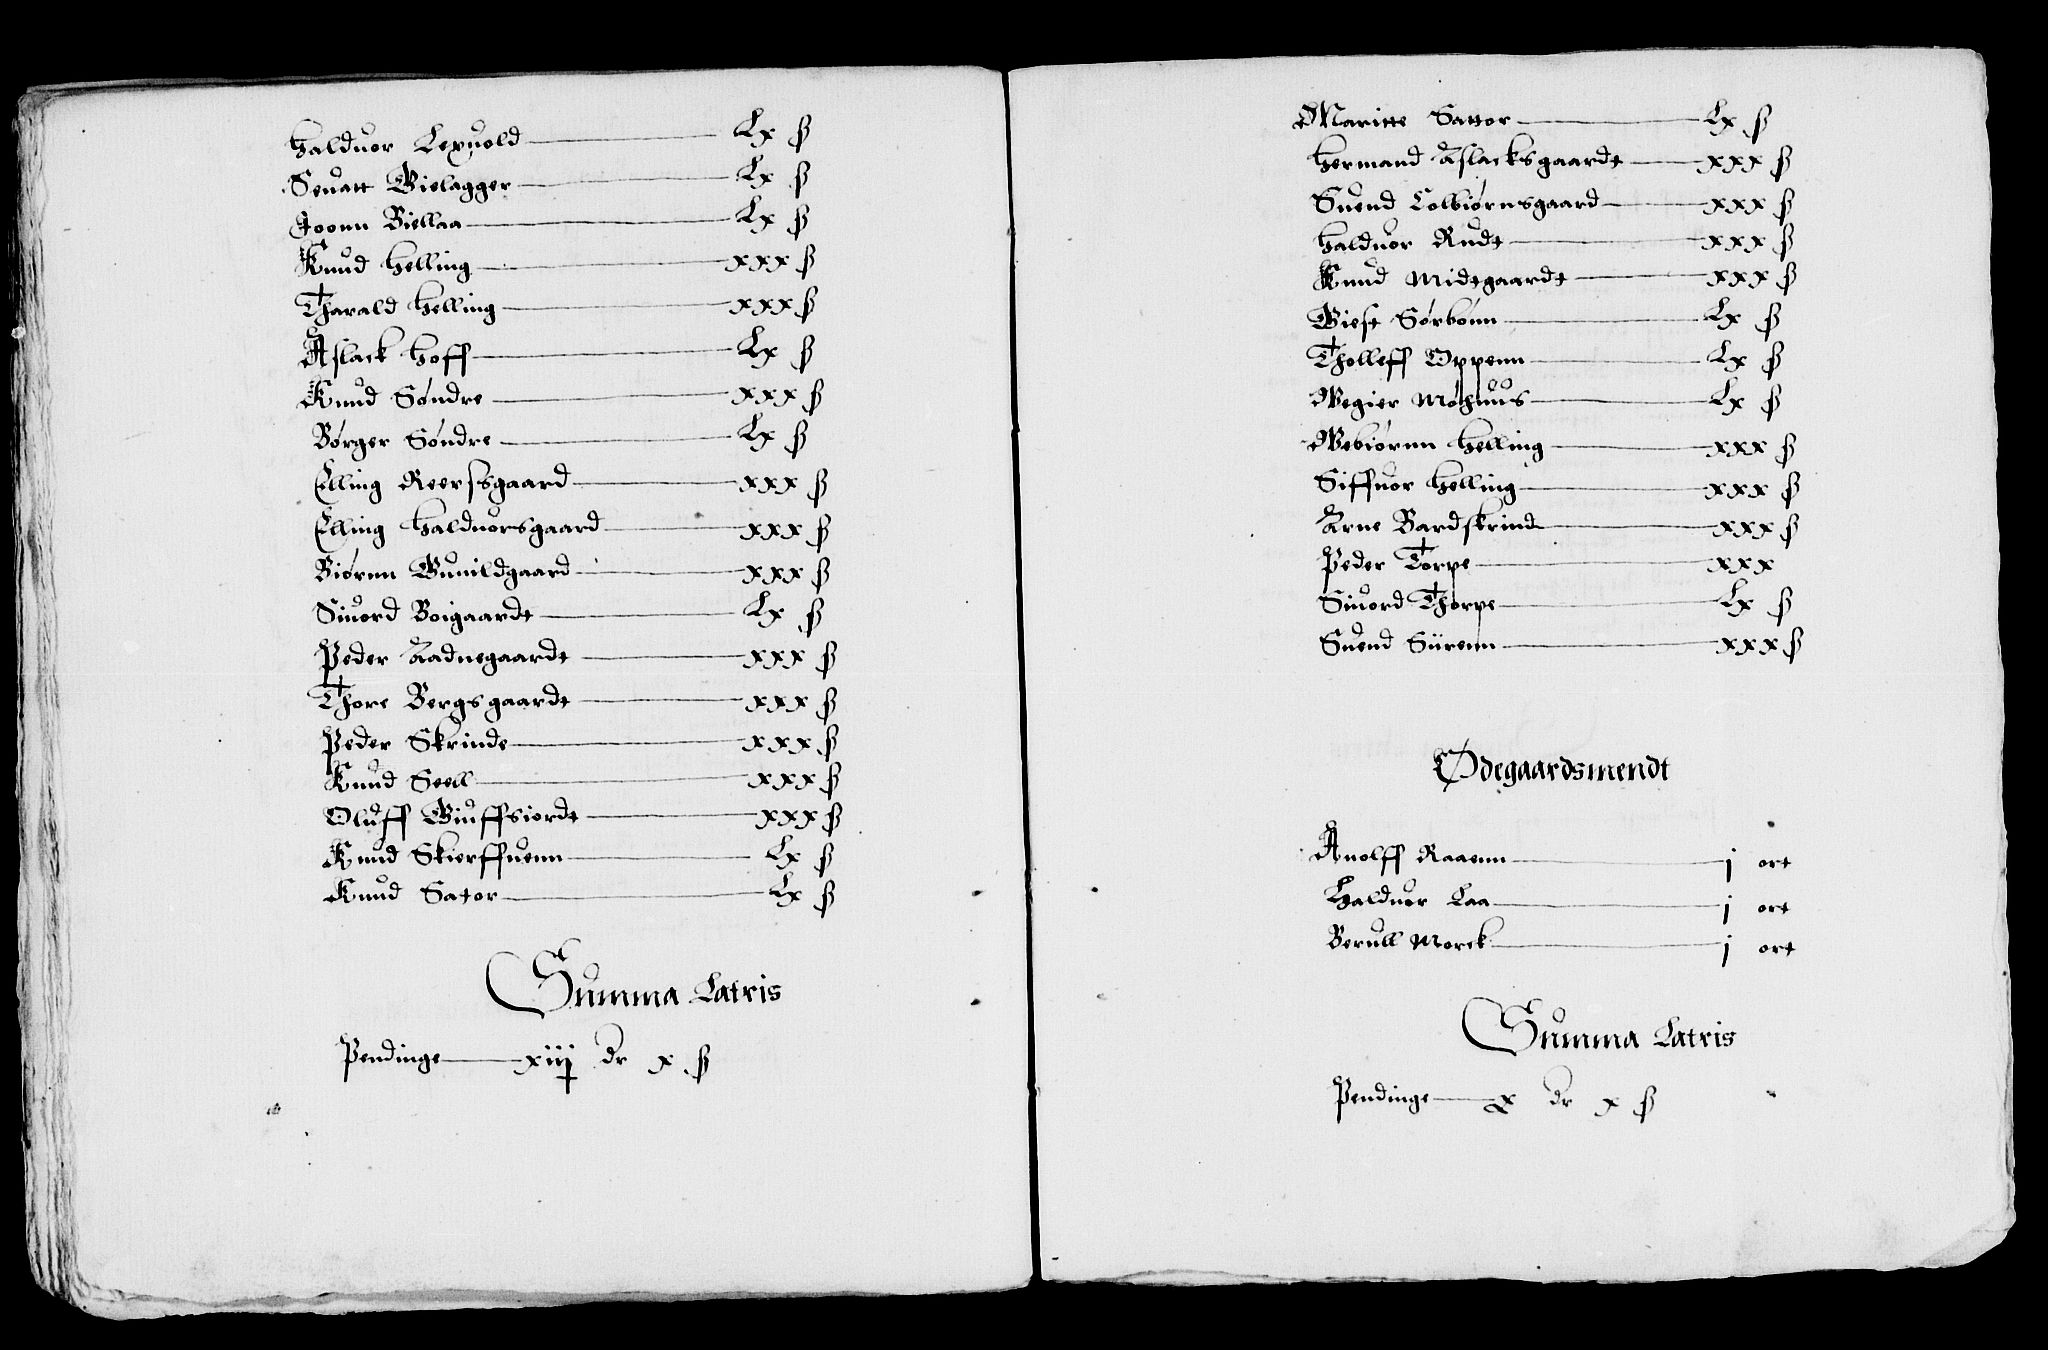 Halduor Lexuold — Lx ß
Seuatt Gielagger — Lx ß
Joonn Biellaa — Lx ß
Knud Helling — xxx ß
Tharald Helling — xxx ß
Aslack Hoff — Lx ß
Knud Søndre — xxx ß
Børger Søndre — Lx ß
Elling Reersgaard — xxx ß
Elling Halduorsgaard — xxx ß
Biørnn Gunildgaard — xxx ß
Siuord Boigaardt — Lx ß
Peder Aadnegaardt — xxx ß
Thore Bergsgaardt — xxx ß
Peder Skrinde — xxx ß
Knud Seell — xxx ß
Oluff Giuffsiordt — xxx ß
Knud Skierffuenn — Lx ß
Knud Sator — Lx ß
Summa Latris
Pendinge — xiij dr x ß
Maritte Sattor — Lx ß
Hermand Aslacksgaardt — xxx ß
Suend Colbiørnsgaard — xxx ß
Halduor Rudt — xxx ß
Knud Midtgaardt — xxx ß
Giest Sørbønn — Lx ß
Tholleff Oppenn — Lx ß
Wegier Møhuus — Lx ß
Webiørnn Helling — xxx ß
Siffuor Helling — xxx ß
Arne Bardskrind — xxx ß
Peder Torpe — xxx
Siuord Thorpe — Lx ß
Suend Siirenn — xxx ß
Ødegaardsmendt
Anolff Raaenn — j ort
Halduor Laa — j ort
Berull Morck — j ort
Summa Latris
Pendinge — x dr x ß